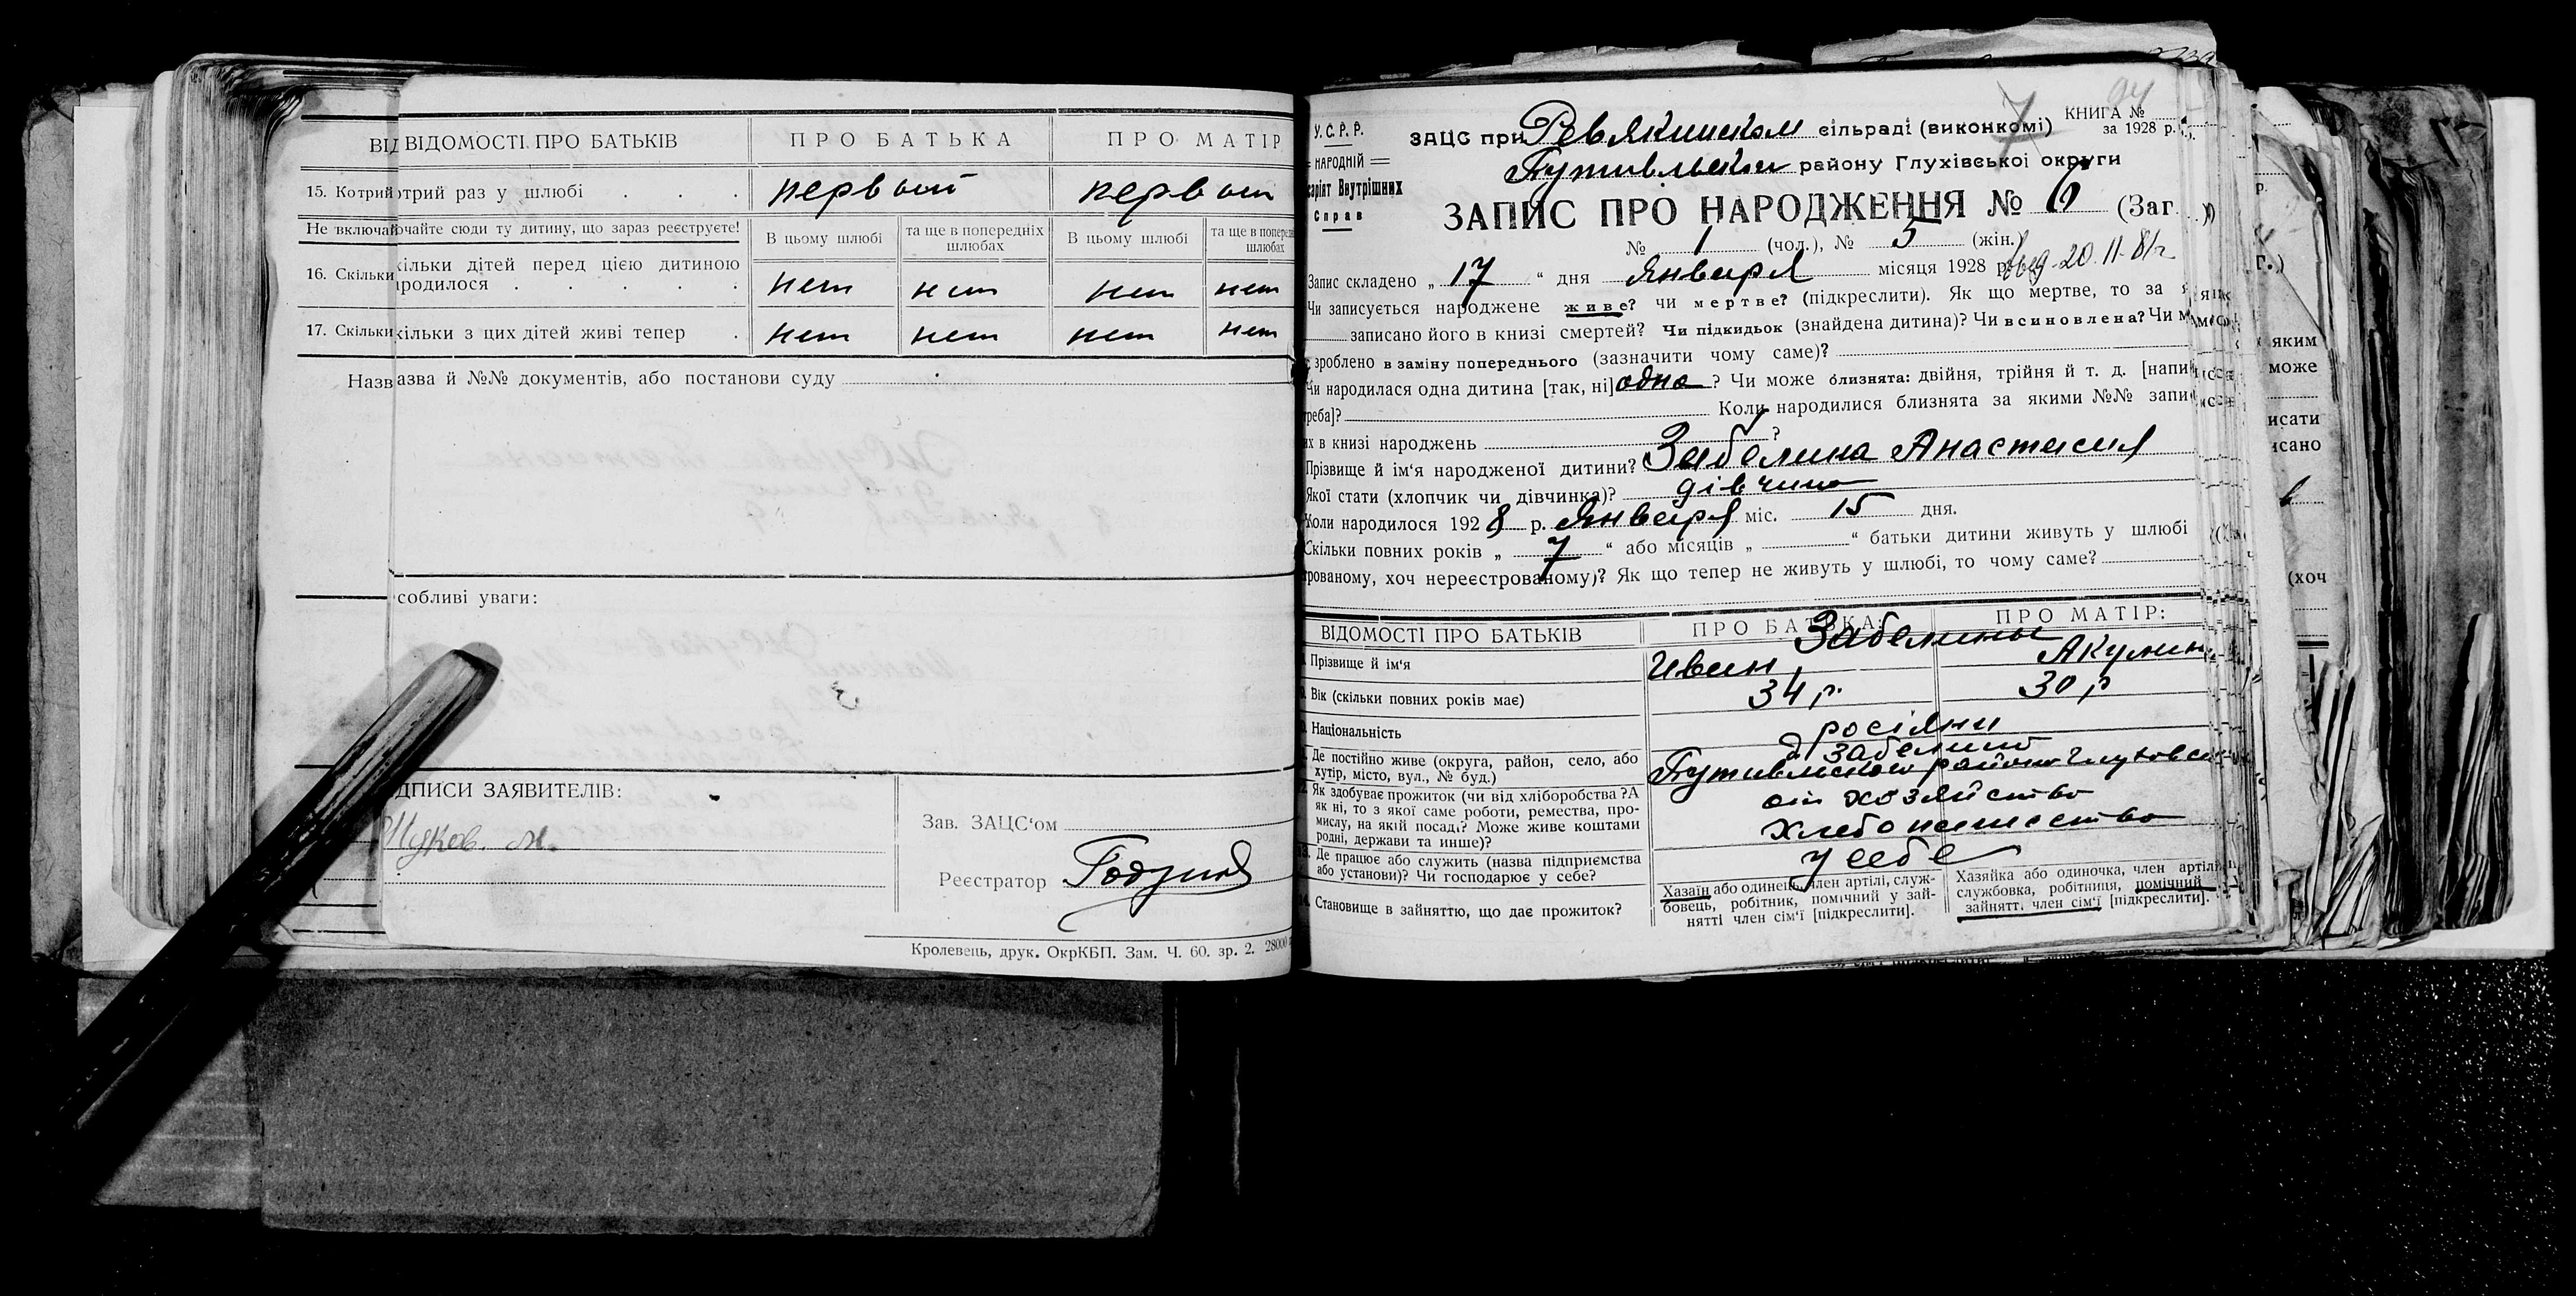 ВІДОМОСТІ ПРО БАТЬКІВ
ПРО БАТЬКА
ПРО МАТІР
15. Котрий раз у шлюбі
первый
первый
Не включайте сюди ту дитину, що зараз реєструєте!
В цьому шлюбі
та ще в попередніх шлюбах
В цьому шлюбі
та ще в попередн
шлюбах
16. Скільки дітей перед цією дитиною
народилося
нет нет нет нет
17. Скільки з цих дітей живі тепер
нет нет нет нет
Назва й №№ документів, або постанови суду
собливі уваги:
ДПИСИ ЗАЯВИТЕЛІВ:
Жуков. М.
Зав. ЗАЦС‘ом
Реєстратор Годунов
Кролевець, друк. ОкрКБП. Зам. Ч. 60. зр. 2. 28000
У.С.Р.Р.
НАРОДНІЙ
саріят Внутрішних
Справ
7
94
КНИГА №
за 1928 р.
ЗАЦС при Ревякинском сільраді (виконкомі)
Путивльскому району Глухівської округи
ЗАПИС ПРО НАРОДЖЕННЯ № 6 (Заг.)
№ 1 (чол.), № 5 (жін.)
Запис складено „ 17 “ дня Января місяця 1928 р.
20.11.81г
Чи записується народжене живе? чи мертве? (підкреслити). Як що мертве, то за
записано його в книзі смертей? Чи підкидьок (знайдена дитина)? Чи всиновлена? Чи
зроблено в заміну попереднього (зазначити чому саме)?
Чи народилася одна дитина [так, ні] одна? Чи може близнята: двійня, трійня й т. д. [напи
треба]? Коли народилися близнята за якими №№ запи
их в книзі народжень ?
Прізвище й ім‘я народженої дитини? Забелина Анастасия
Якої стати (хлопчик чи дівчинка)? дівчина
Коли народилося 1928 р. Января міс. 15 дня.
Скільки повних років „ 7 “ або місяців „ “ батьки дитини живуть у шлюбі
рованому, хоч нереєстрованому)? Як що тепер не живуть у шлюбі, то чому саме?
ВІДОМОСТІ ПРО БАТЬКІВ
ПРО БАТЬКА:
ПРО МАТІР:
Забелины
Прізвище й ім‘я
Иван
Акулин
Вік (скільки повних років має)
34 р.
30 р
Національність
росіяни
Де постійно живе (округа, район, село, або
хутір, місто, вул., № буд.)
д Забелино
Путивльского района Глуховск
Як здобуває прожиток (чи від хліборобства? А
як ні, то з якої саме роботи, ремества, про-
мислу, на якій посаді? Може живе коштами
родні, держави та инше)?
от хозяйство
хлебопашество
Де працює або служить (назва підприємства
або установи)? Чи господарює у себе?
у себе
Становище в зайняттю, що дає прожиток?
Хазаїн або одинець, член артілі, служ-
бовець, робітник, помічний у зай-
нятті член сім‘ї [підкреслити].
Хазяйка або одиночка, член артіл
службовка, робітниця, помічний
зайнятт. член сім‘ї [підкреслити].
яким
може
исати
исано
(хоч